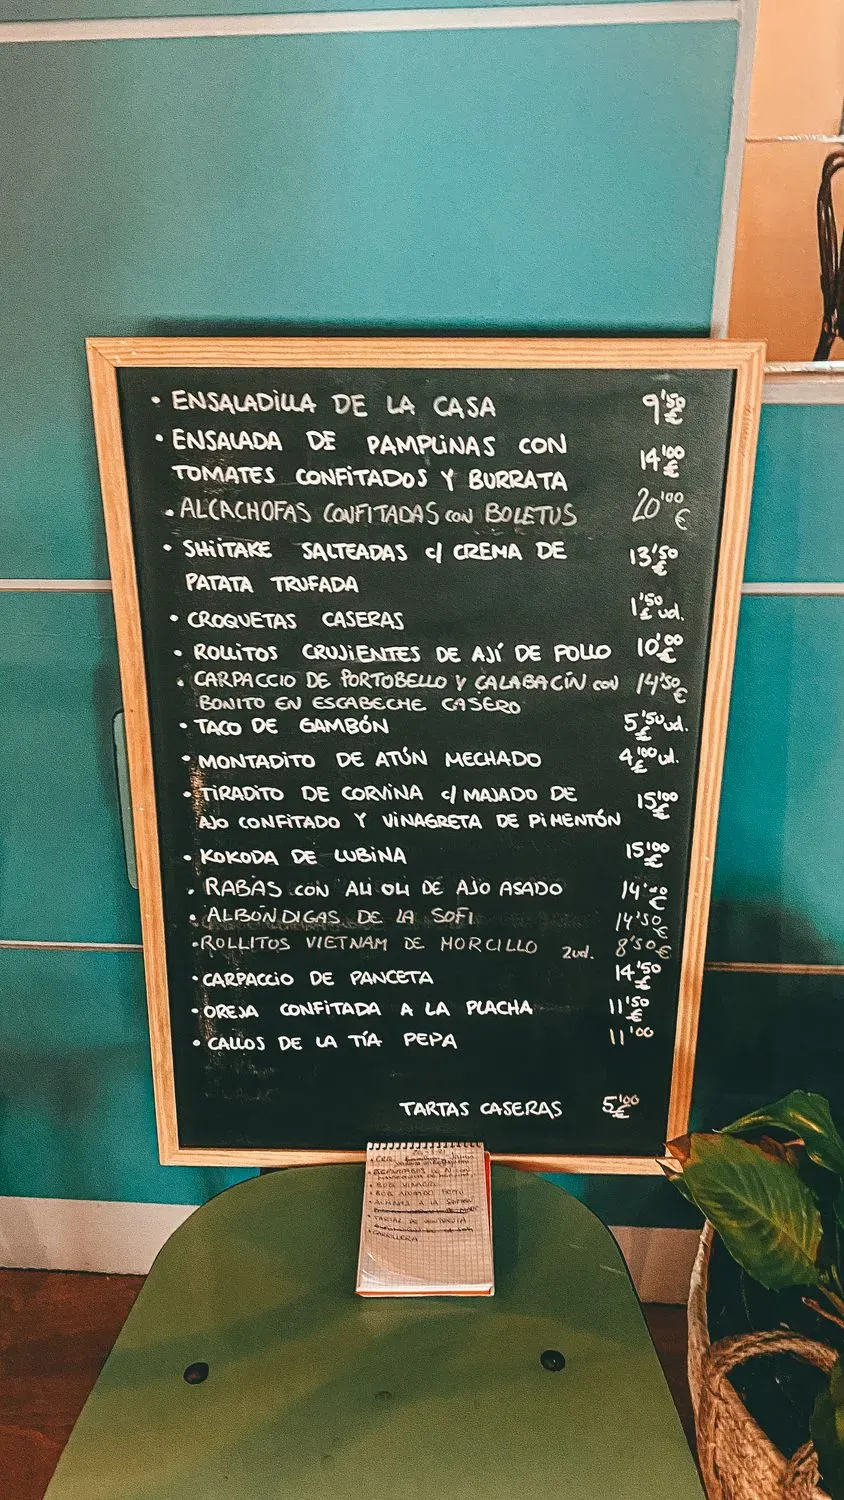 • ENSALADILLA DE LA CASA 9'50 €
• ENSALADA DE PAMPLINAS CON
TOMATES CONFITADOS Y BURRATA 14'00 €
• ALCACHOFAS CONFITADAS CON BOLETUS 20'00 €
• SHIITAKE SALTEADAS c/ CREMA DE
PATATA TRUFADA 13'50 €
• CROQUETAS CASERAS 1'50 € ud.
• ROLLITOS CRUJIENTES DE AJÍ DE POLLO 10'00 €
• CARPACCIO DE PORTOBELLO Y CALABACÍN CON 14'50 €
BONITO EN ESCABECHE CASERO
• TACO DE GAMBÓN 5'50 € ud.
• MONTADITO DE ATÚN MECHADO 4'00 € ud.
• TIRADITO DE CORVINA c/ MAJADO DE
AJO CONFITADO Y VINAGRETA DE PIMENTÓN 15'00 €
• KOKODA DE LUBINA 15'00 €
• RABAS CON ALI OLI DE AJO ASADO 14'00 €
• ALBÓNDIGAS DE LA SOFI 14'50 €
• ROLLITOS VIETNAM DE MORCILLO 2ud. 8'50 €
• CARPACCIO DE PANCETA 14'50 €
• OREJA CONFITADA A LA PLACHA 11'50 €
• CALLOS DE LA TÍA PEPA 11'00
TARTAS CASERAS 5'00 €
• CARRILLERA